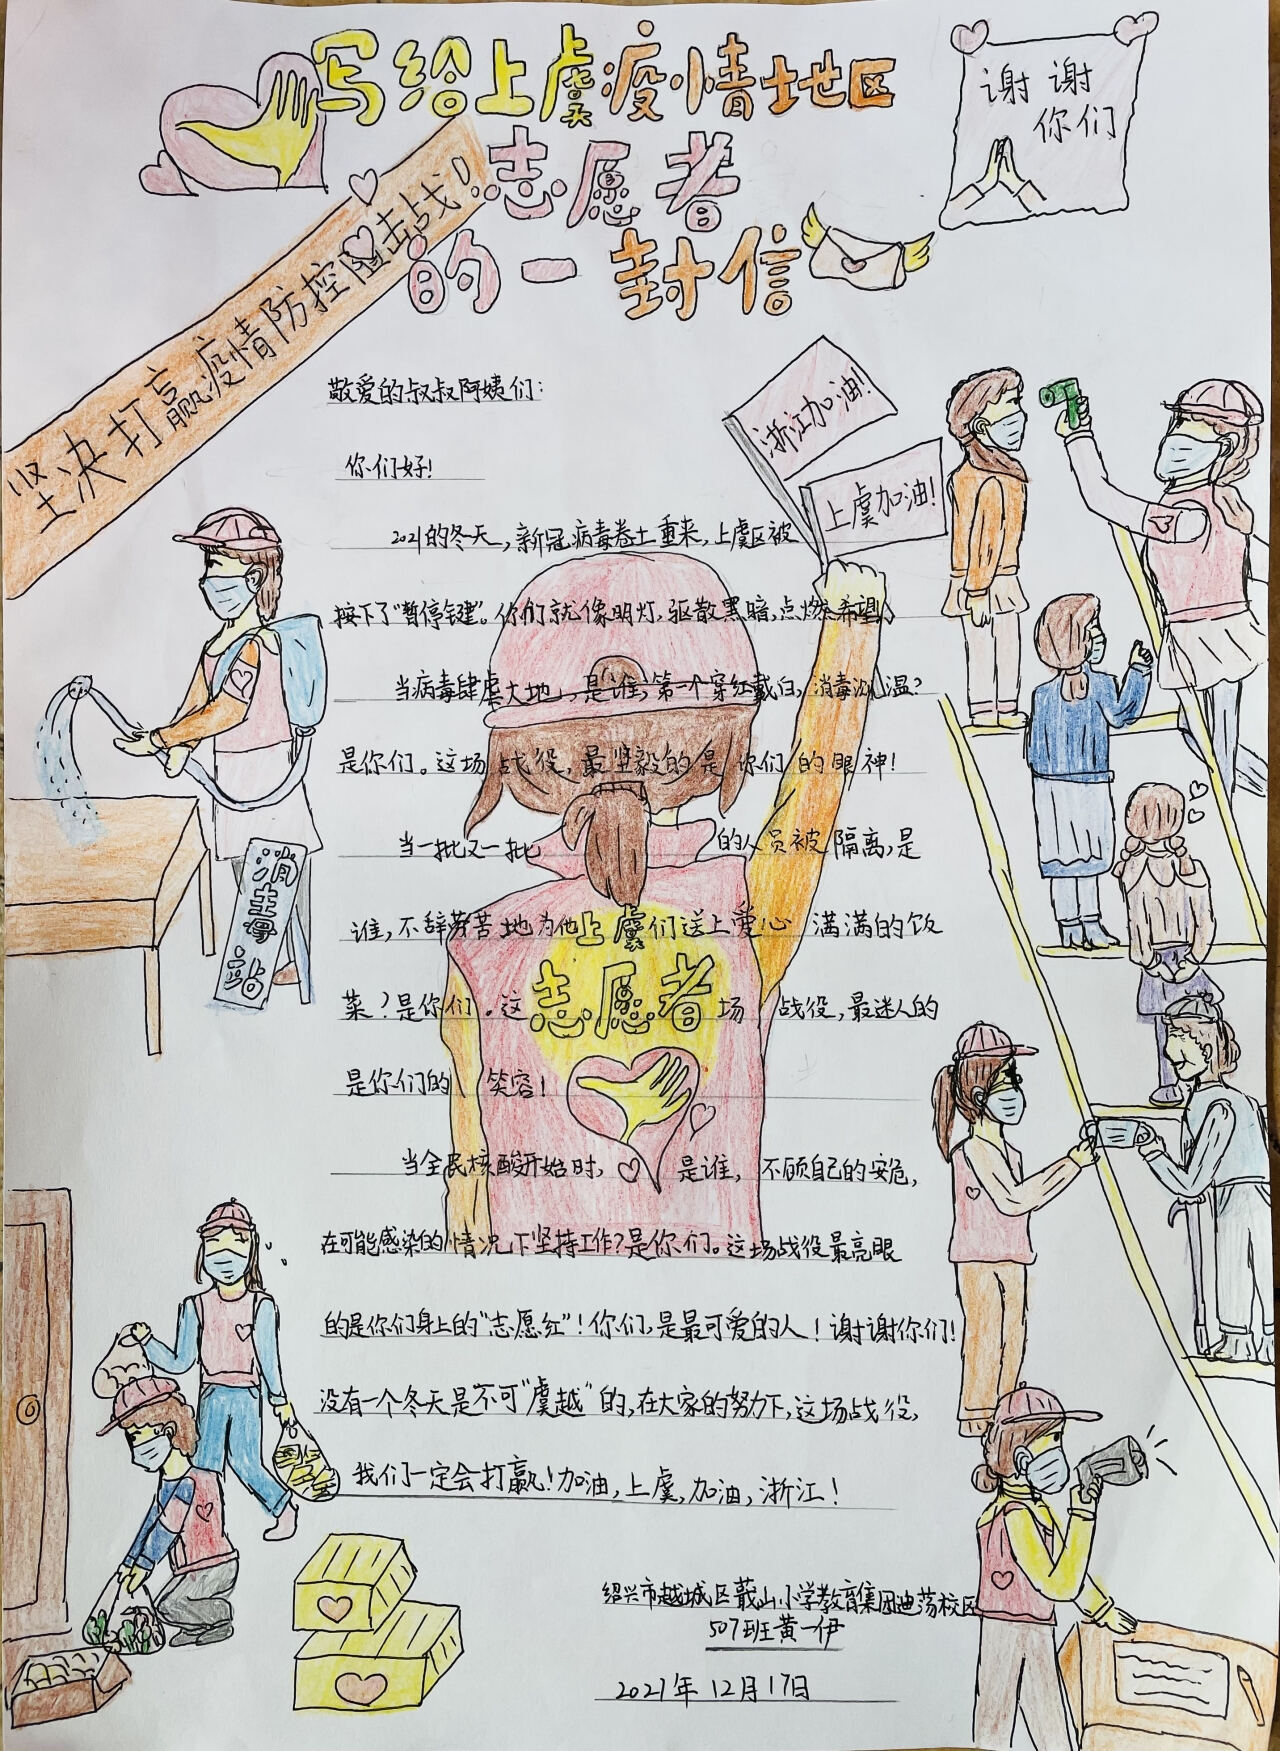 写给上虞疫情地区
志愿者
的一封信
谢谢
你们
坚决打赢疫情防控阻击战!
敬爱的叔叔阿姨们:
你们好!
浙江加油!
上虞加油!
2021的冬天,新冠病毒卷土重来,上虞区被
按下了"暂停键"。你们就像明灯,驱散黑暗,点燃希望。
当病毒肆虐大地上,是谁,第一个穿红戴白,消毒测温?
是你们。这场战役,最坚毅的是你们的眼神!
当一批又一批的人员被隔离,是
谁,不辞劳苦地为他们送上爱心满满的饭
菜?是你们。这场战役,最迷人的
是你们的笑容!
当全民核酸开始时,是谁,不顾自己的安危,
在可能感染的情况下坚持工作?是你们。这场战役最亮眼
的是你们身上的"志愿红"!你们,是最可爱的人!谢谢你们!
没有一个冬天是不可"虞越"的,在大家的努力下,这场战役,
我们一定会打赢!加油,上虞,加油,浙江!
上虞
志愿者
消毒站
绍兴市越城区蕺山小学教育集团迪荡校区
507班黄一伊
2021年12月17日